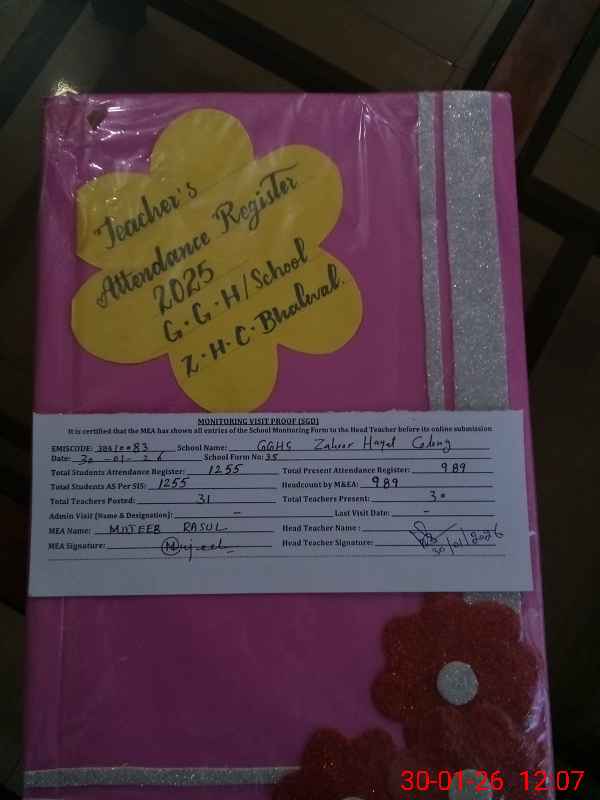 Teacher's
Attendance Register
2025
G.G.H/School
Z.H.C.Bhalwal.
MONITORING VISIT PROOF (SGD)
It is certified that the MEA has shown all entries of the School Monitoring Form to the Head Teacher before its online submission
EMISCODE: 38410083 School Name: GGHS Zahoor Hayat Colony
Date: 30-01-26 School Form No: 35
Total Students Attendance Register: 1255 Total Present Attendance Register: 989
Total Students AS Per SIS: 1255 Headcount by M&EA: 989
Total Teachers Posted: 31 Total Teachers Present: 30
Admin Visit (Name & Designation): - Last Visit Date: -
MEA Name: MUJEEB RASUL Head Teacher Name :
MEA Signature: Mujeeb Head Teacher Signature: 30/01/2026
30-01-26 12:07